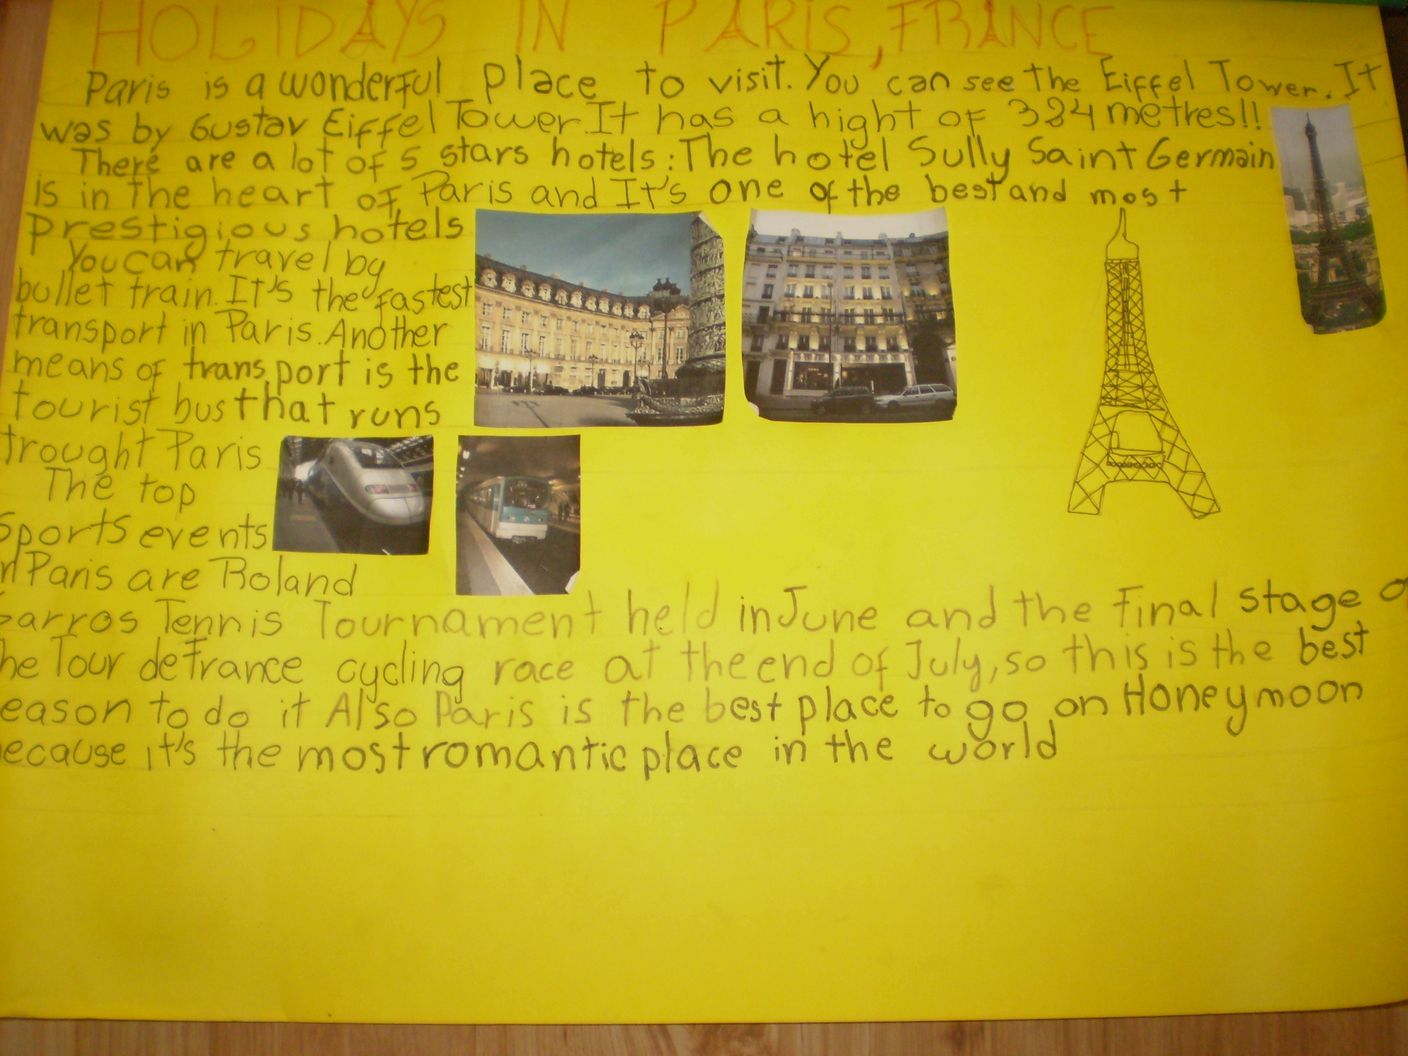 HOLIDAYS IN PARIS, FRANCE
Paris is a wonderful place to visit. You can see the Eiffel Tower. It
was by Gustav Eiffel Tower. It has a hight of 324 metres!!
There are a lot of 5 stars hotels: The hotel Sully Saint Germain
is in the heart of Paris and It's one of the best and most
prestigious hotels
You can travel by
bullet train. It's the fastest
transport in Paris. Another
means of transport is the
tourist bus that runs
trought Paris
The top
Sports events
in Paris are Roland
Garros Tennis Tournament held in June and the final stage of
the Tour de France cycling race at the end of July, so this is the best
season to do it Also Paris is the best place to go on Honeymoon
because it's the most romantic place in the world